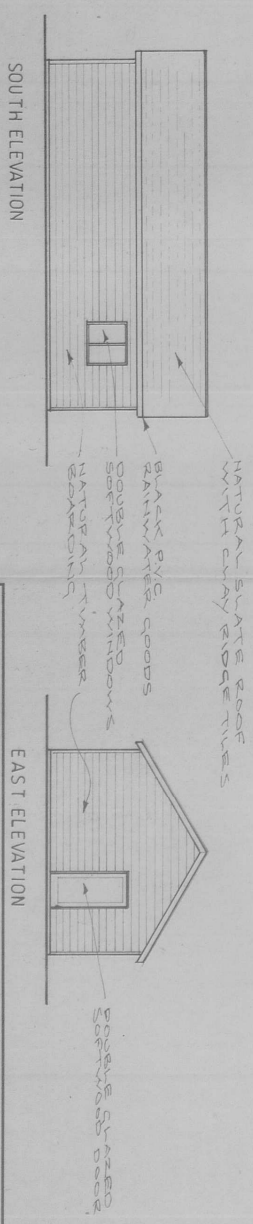 NATURAL SLATE ROOF
WITH CLAY RIDGE TILES
BLACK P.V.C.
RAINWATER GOODS
DOUBLE GLAZED
SOFTWOOD WINDOWS
NATURAL TIMBER
BOARDING
SOUTH ELEVATION
DOUBLE GLAZED
SOFTWOOD DOOR
EAST ELEVATION